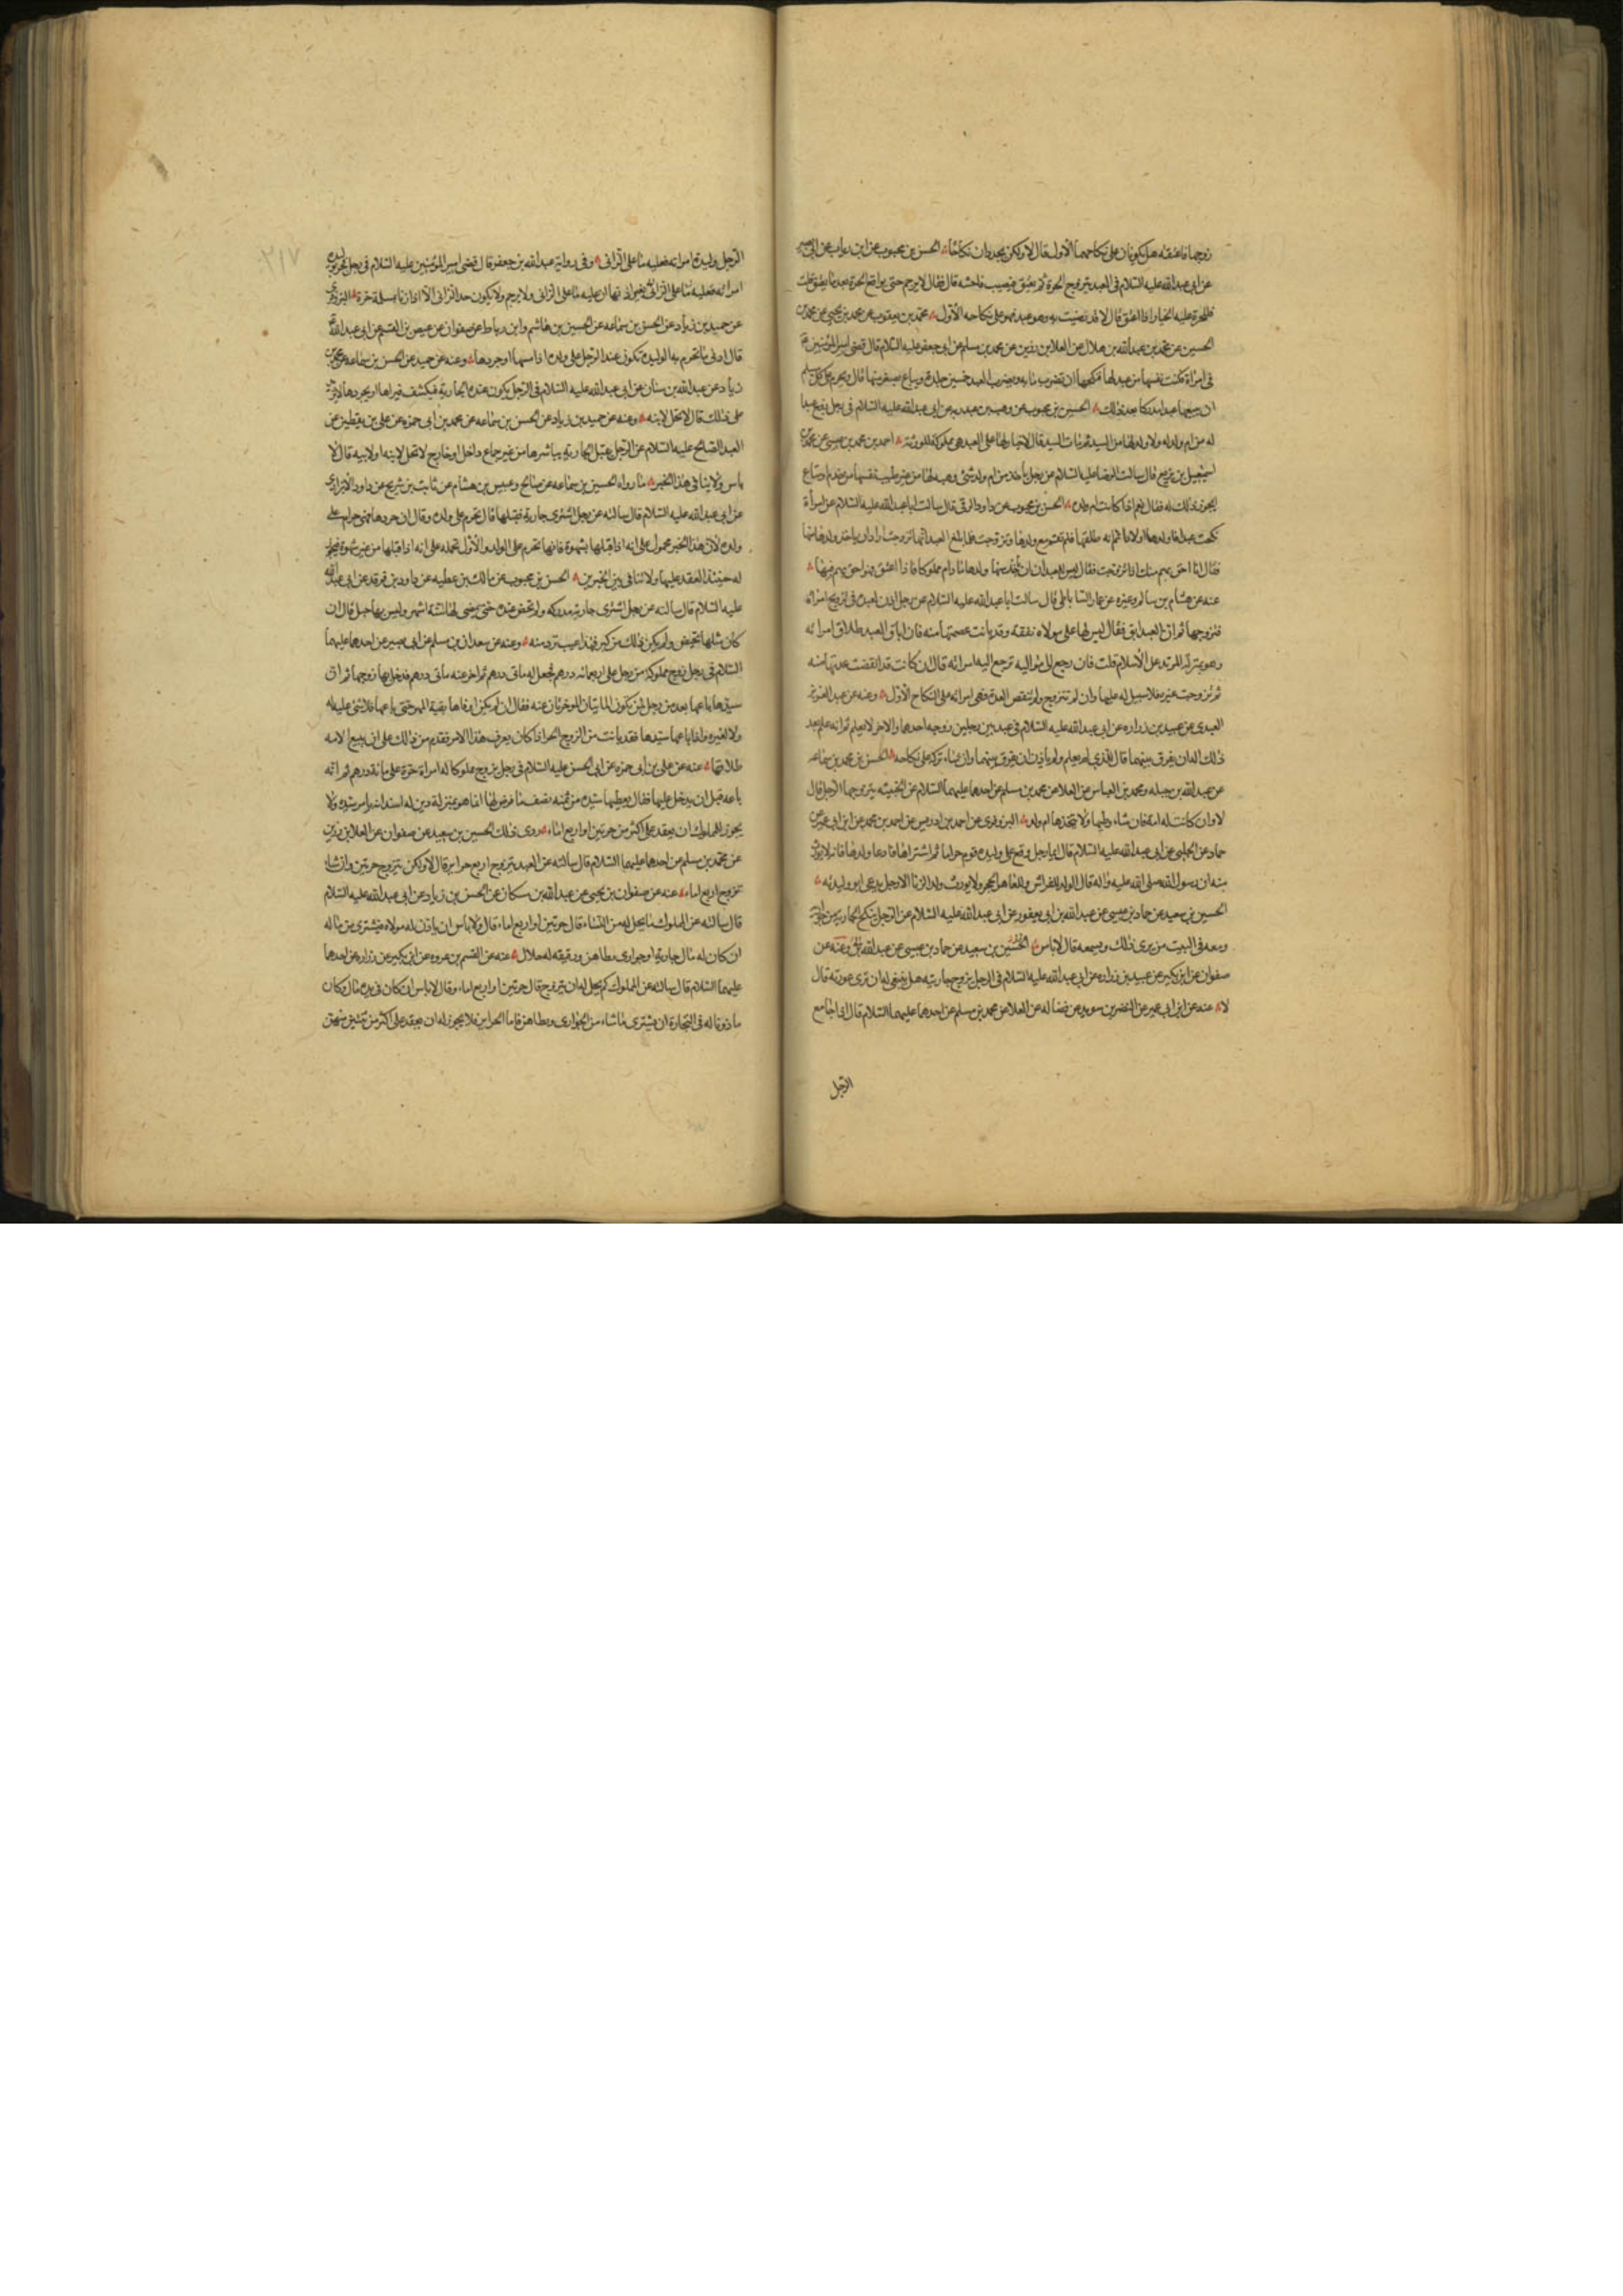 زوجها فاعتقه هل يكونان على نكاحهما الاول قال لا ولكن يجددان نكاحًا الحسن بن محبوب عن ابن رئاب عن ابى بصير
عن ابى عبد الله عليه السلام فى العبد يتزوج الحرة ثم يعتق فيصيب فاحشه قال فقال لا يرجم حتى يواقع الحرة بعد ما يعتق قلت
فللحرة عليه الخيار اذا اعتق قال لا قد رضيت به وهو عبد فهو على نكاحه الأول محمد بن يعقوب عن محمد بن يحيى عن محمد بن
الحسين عن محمد بن عبد الله بن هلال عن العلا بن رزين عن محمد بن مسلم عن ابى جعفر عليه السلام قال قضى امير المؤمنين
فى امرأة مكنت نفسها من عبد لها فنكحها ان تضرب مايه ويضرب العبد خمسين جلدة ويباع بصغر منها قال ويحرم على كل مسلم
ان يبيعها عبدا مدركا بعد ذلك الحسن بن محبوب عن وهب بن عبد ربه عن ابى عبد الله عليه السلام فى رجل زوج عبدا
له من ام ولد له ولا ولد لها من السيد ثم مات السيد قال لا خيار لها على العبد هى مملوكة للورثة احمد بن محمد بن عيسى عن محمد بن
اسمعيل بن بزيع قال سالت الرضا عليه السلام عن رجل يأخذ من ام ولده شئ وهبه لها من غير طيبة نفسها من خدم او متاع
ايجوز ذلك له فقال نعم اذا كانت ام ولده الحسن بن محبوب عن داود الرقى قال سالت ابا عبد الله عليه السلام عن امرأة
نكحت عبدا فاولدها اولادا ثم انه طلقها فلم تقم مع ولدها وتزوجت فلما بلغ العبد انها تزوجت اراد ان ياخذ ولده منها
فقال انا احق بهم منك اذا تزوجت فقال ليس للعبد ان ياخذ منها ولدها ما دام مملوكا فاذا اعتق فهو احق بهم منها
عنه عن هشام بن سالم وغيره عن عمار الساباطى قال سالت ابا عبد الله عليه السلام عن رجل اذن لعبده فى تزويج امراة
فتزوجها ثم ان العبد ابق فقال ليس لها على مولاه نفقه وقد بانت عصمتها منه فان اباق العبد طلاق امراته
وهو بمنزلة المرتد عن الاسلام قلت فان رجع الى مواليه ترجع اليه امراته قال ان كانت قد انقضت عدتها منه
ثم تزوجت غيره فلا سبيل له عليها وان لم تتزوج ولم تنقض العدة فهى امراته على النكاح الأول وعنه عن عبد العزيز
العبدى عن عبيد بن زراره عن ابى عبد الله عليه السلام فى عبد بين رجلين زوجه احدهما والاخر لا يعلم ثم انه علم بعد
ذلك اله ان يفرق بينهما قال للذى لم يعلم ولم يأذن ان يفرق بينهما وان شاء تركه على نكاحه الحسن بن محمد بن سماعه
عن عبد الله بن جبله ومحمد بن العباس عن العلا عن محمد بن مسلم عن احدهما عليهما السلام عن الخبيثه يتزوجها الرجل قال
لا وان كانت له امة فان شاء وطيها ولا يتخذها ام ولد البزوفرى عن احمد بن ادريس عن احمد بن محمد عن ابن ابى عمير عن
حماد عن الحلبى عن ابى عبد الله عليه السلام قال ايما رجل وقع على وليده قوم حراما ثم اشتراها فادعا ولدها فانه لا يورث
منه ان رسول الله صلى الله عليه واله قال الولد للفراش وللعاهر الحجر ولا يورث ولد الزنا الا رجل يدعى ابن وليدته
الحسين بن سعيد عن حماد بن عيسى عن عبد الله بن ابى يعفور عن ابى عبد الله عليه السلام عن الرجل ينكح الجارية من جواريه
ومعه فى البيت من يرى ذلك ويسمعه قال لا باس الحسين بن سعيد عن حماد بن عيسى عن عبد الله وعنه عن
صفوان عن ابن بكير عن عبيد بن زراره عن ابى عبد الله عليه السلام فى الرجل يزوج جاريته هل ينبغى له ان ترى عورته قال
لا عنه عن ابن ابى عمير عن النضر بن سويد عن فضاله عن العلا عن محمد بن مسلم عن احدهما عليهما السلام قال اذا جامع
الرجل
٢١٧
الرجل وليدة امراته فعليه ما على الزانى وفى رواية عبد الله بن جعفر قال قضى امير المؤمنين عليه السلام فى رجل
امراته فعليه ما على الزانى عليه ما على الزانى ولا يرجم ولا يكون حد الزانى الا اذا زنا بمسلمة حرة البزوفرى
عن حميد بن زياد عن الحسن بن سماعه عن الحسين بن هاشم وابن رباط عن صفوان عن عيص بن القسم عن ابى عبد الله
قال ادنى ما تحرم به الوليدة تكون عند الرجل على ولده اذا مسها او جردها وعنه عن حميد عن الحسن بن سماعه عن محمد بن
زياد عن عبد الله بن سنان عن ابى عبد الله عليه السلام فى الرجل يكون عنده الجارية فيكشف فيراها او يجردها لا يزيد
على ذلك قال لا تحل لابنه وعنه عن حميد بن زياد عن الحسن بن سماعه عن محمد بن ابى حمزه عن على بن يقطين عن
العبد الصالح عليه السلام عن الرجل يقبل الجارية يباشرها من غير جماع داخل او خارج لا تحل لابنه او لابيه قال لا
باس ولا ينافى هذا الخبر ما رواه الحسين بن سماعه عن صالح وعبيس بن هشام عن ثابت بن شريح عن داود الابزارى
عن ابى عبد الله عليه السلام قال سالته عن رجل اشترى جارية فقبلها قال تحرم على ولده وقال ان جردها فهى حرام على
ولده لأن هذا الخبر محمول على انه اذا قبلها بشهوة فانها تحرم على الولد والأول نحمله على انه اذا قبلها من غير شهوة فيحل
له حينئذ العقد عليها ولا تنافى بين الخبرين الحسن بن محبوب عن مالك بن عطيه عن داود بن فرقد عن ابى عبد الله
عليه السلام قال سالته عن رجل اشترى جارية مدركه ولم تحض عنده حتى يمضى لها ستة اشهر وليس بها حبل قال ان
كان مثلها تحيض ولم يكن ذلك من كبر فهذا عيب ترد منه وعنه عن سعدان بن مسلم عن ابى بصير عن احدهما عليهما
السلام فى رجل زوج مملوكة من رجل على اربعمائه درهم فعجل له مأتى درهم ثم اخر عنه مأتى درهم فدخل بها زوجها ثم ان
سيدها باعها بعد من رجل لمن يكون المايتان المؤخرتان عنه فقال ان لم يكن اوفاها بقية المهر حتى باعها فلا شئ عليه له
ولا لغيره واذا باعها سيدها فقد بانت من الزوج الحر اذا كان يعرف هذا الامر فقد تقدم من ذلك على ان بيع الامه
طلاقها عنه عن على بن ابى حمزه عن ابى الحسن عليه السلام فى رجل يزوج مملوكا له امراة حرة على مائة درهم ثم انه
باعه قبل ان يدخل عليها فقال يعطيها سيده من ثمنه نصف ما فرض لها انما هو بمنزلة دين له استدانه بامر سيده ولا
يجوز للمملوك ان يعقد على اكثر من حرتين او اربع اماء روى ذلك الحسين بن سعيد عن صفوان عن العلا بن رزين
عن محمد بن مسلم عن احدهما عليهما السلام قال سالته عن العبد يتزوج اربع حراير قال لا ولكن يتزوج حرتين وان شاء
تزوج اربع اماء عنه عن صفوان بن يحيى عن عبد الله بن مسكان عن الحسن بن زياد عن ابى عبد الله عليه السلام
قال سالته عن المملوك ما يحل له من النساء قال حرتين او اربع اماء قال ولا باس ان ياذن له مولاه فيشترى من ماله
ان كان له مال جارية او جوارى يطاهن ورقيقه له حلال عنه عن القسم بن عروه عن ابن بكير عن زراره عن احدهما
عليهما السلام قال سالته عن المملوك كم يحل له ان يتزوج قال حرتين او اربع اماء وقال لا باس ان كان فى يده مال وكان
ماذونا له فى التجارة ان يشترى ما شاء من الجوارى ويطاهن فاما الحراير فلا يجوز له ان يعقد على اكثر من ثنتين منهن